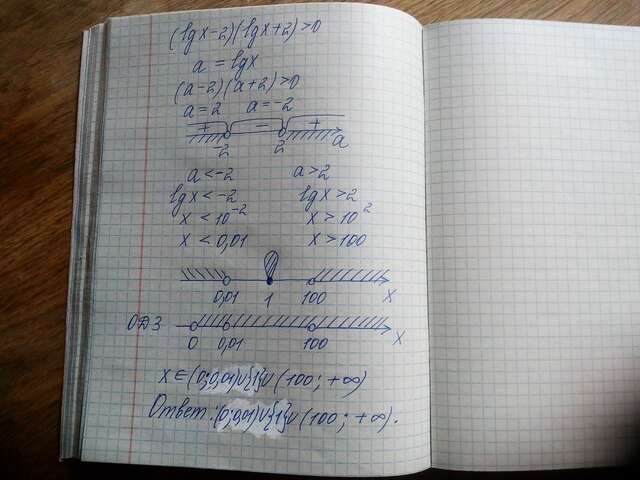 (lgx-2)(lgx+2)>0
a = lgx
(a-2)(a+2)>0
a=2 a=-2
+ - +
-2 2 a
a<-2 a>2
lgx<-2 lgx>2
x<10⁻² x>10²
x<0,01 x>100
0,01 1 100 x
ОДЗ
0 0,01 100 x
x∈(0;0,01)∪{1}∪(100;+∞)
Ответ:(0;0,01)∪{1}∪(100;+∞).